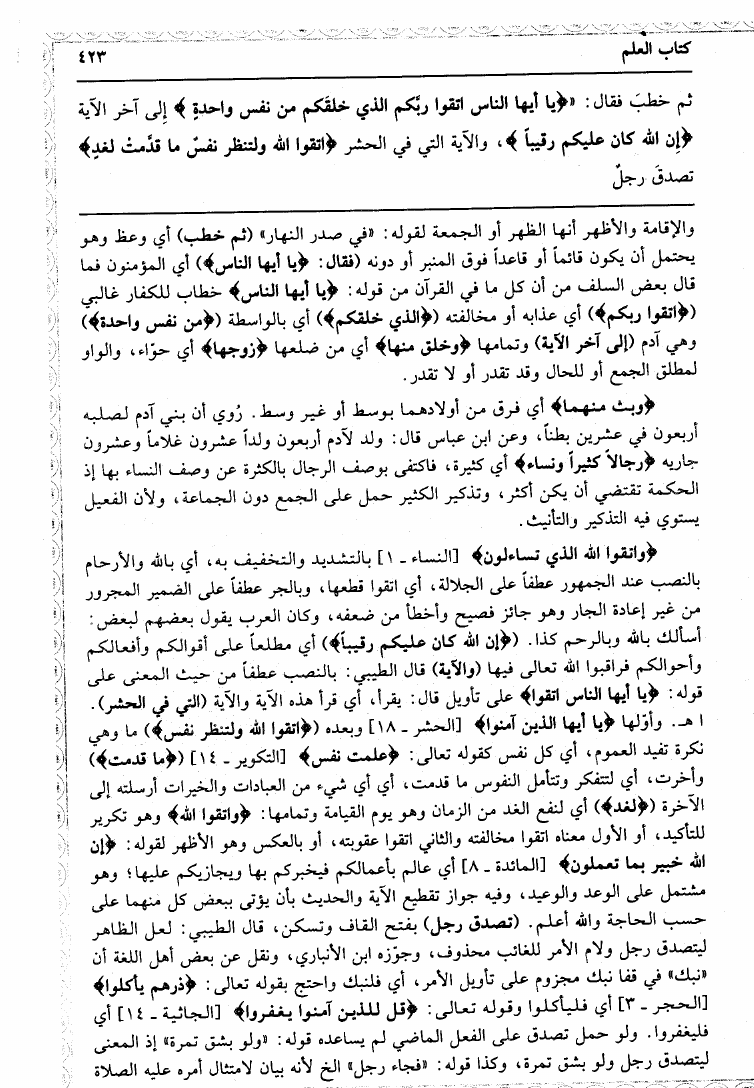 كتاب العلم
٤٢٣
ثم خطبَ فقال: «﴿يا أيها الناس اتقوا ربَّكم الذي خلقَكم من نفس واحدةٍ﴾ إلى آخر الآية
﴿إِن الله كان عليكم رقيباً﴾، والآية التي في الحشر ﴿اتقوا الله ولتنظر نفسٌ ما قدَّمتْ لغدٍ﴾
تصدقَ رجلٌ
والإقامة والأظهر أنها الظهر أو الجمعة لقوله: «في صدر النهار» (ثم خطب) أي وعظ وهو
يحتمل أن يكون قائماً أو قاعداً فوق المنبر أو دونه (فقال: ﴿يا أيها الناس﴾) أي المؤمنون فما
قال بعض السلف من أن كل ما في القرآن من قوله: ﴿يا أيها الناس﴾ خطاب للكفار غالبي
(﴿اتقوا ربكم﴾) أي عذابه أو مخالفته (﴿الذي خلقكم﴾) أي بالواسطة (﴿من نفس واحدة﴾)
وهي آدم (إلى آخر الآية) وتمامها ﴿وخلق منها﴾ أي من ضلعها ﴿زوجها﴾ أي حوّاء، والواو
لمطلق الجمع أو للحال وقد تقدر أو لا تقدر.
﴿وبث منهما﴾ أي فرق من أولادهما بوسط أو غير وسط. رُوي أن بني آدم لصلبه
أربعون في عشرين بطناً، وعن ابن عباس قال: ولد لآدم أربعون ولداً عشرون غلاماً وعشرون
جاريه ﴿رجالاً كثيراً ونساء﴾ أي كثيرة، فاكتفى بوصف الرجال بالكثرة عن وصف النساء بها إذ
الحكمة تقتضي أن يكن أكثر، وتذكير الكثير حمل على الجمع دون الجماعة، ولأن الفعيل
يستوي فيه التذكير والتأنيث.
﴿واتقوا الله الذي تساءلون﴾ [النساء ـ ١] بالتشديد والتخفيف به، أي بالله والأرحام
بالنصب عند الجمهور عطفاً على الجلالة، أي اتقوا قطعها، وبالجر عطفاً على الضمير المجرور
من غير إعادة الجار وهو جائز فصيح وأخطأ من ضعفه، وكان العرب يقول بعضهم لبعض:
أسألك بالله وبالرحم كذا. (﴿إن الله كان عليكم رقيباً﴾) أي مطلعاً على أقوالكم وأفعالكم
وأحوالكم فراقبوا الله تعالى فيها (والآية) قال الطيبي: بالنصب عطفاً من حيث المعنى على
قوله: ﴿يا أيها الناس اتقوا﴾ على تأويل قال: يقرأ، أي قرأ هذه الآية والآية (التي في الحشر).
ا هـ. وأوّلها ﴿يا أيها الذين آمنوا﴾ [الحشر ـ ١٨] وبعده (﴿اتقوا الله ولتنظر نفس﴾) ما وهي
نكرة تفيد العموم، أي كل نفس كقوله تعالى: ﴿علمت نفس﴾ [التكوير ـ ١٤] (﴿ما قدمت﴾)
وأخرت، أي لتتفكر وتتأمل النفوس ما قدمت، أي أي شيء من العبادات والخيرات أرسلته إلى
الآخرة (﴿لغد﴾) أي لنفع الغد من الزمان وهو يوم القيامة وتمامها: ﴿واتقوا الله﴾ وهو تكرير
للتأكيد، أو الأول معناه اتقوا مخالفته والثاني اتقوا عقوبته، أو بالعكس وهو الأظهر لقوله: ﴿إن
الله خبير بما تعملون﴾ [المائدة ـ ٨] أي عالم بأعمالكم فيخبركم بها ويجازيكم عليها؛ وهو
مشتمل على الوعد والوعيد، وفيه جواز تقطيع الآية والحديث بأن يؤتى ببعض كل منهما على
حسب الحاجة والله أعلم. (تصدق رجل) بفتح القاف وتسكن، قال الطيبي: لعل الظاهر
ليتصدق رجل ولام الأمر للغائب محذوف، وجوّزه ابن الأنباري، ونقل عن بعض أهل اللغة أن
«نبك» في قفا نبك مجزوم على تأويل الأمر، أي فلنبك واحتج بقوله تعالى: ﴿ذرهم يأكلوا﴾
[الحجر ـ ٣] أي فليأكلوا وقوله تعالى: ﴿قل للذين آمنوا يغفروا﴾ [الجاثية ـ ١٤] أي
فليغفروا. ولو حمل تصدق على الفعل الماضي لم يساعده قوله: «ولو بشق تمرة» إذ المعنى
ليتصدق رجل ولو بشق تمرة، وكذا قوله: «فجاء رجل» الخ لأنه بيان لامتثال أمره عليه الصلاة